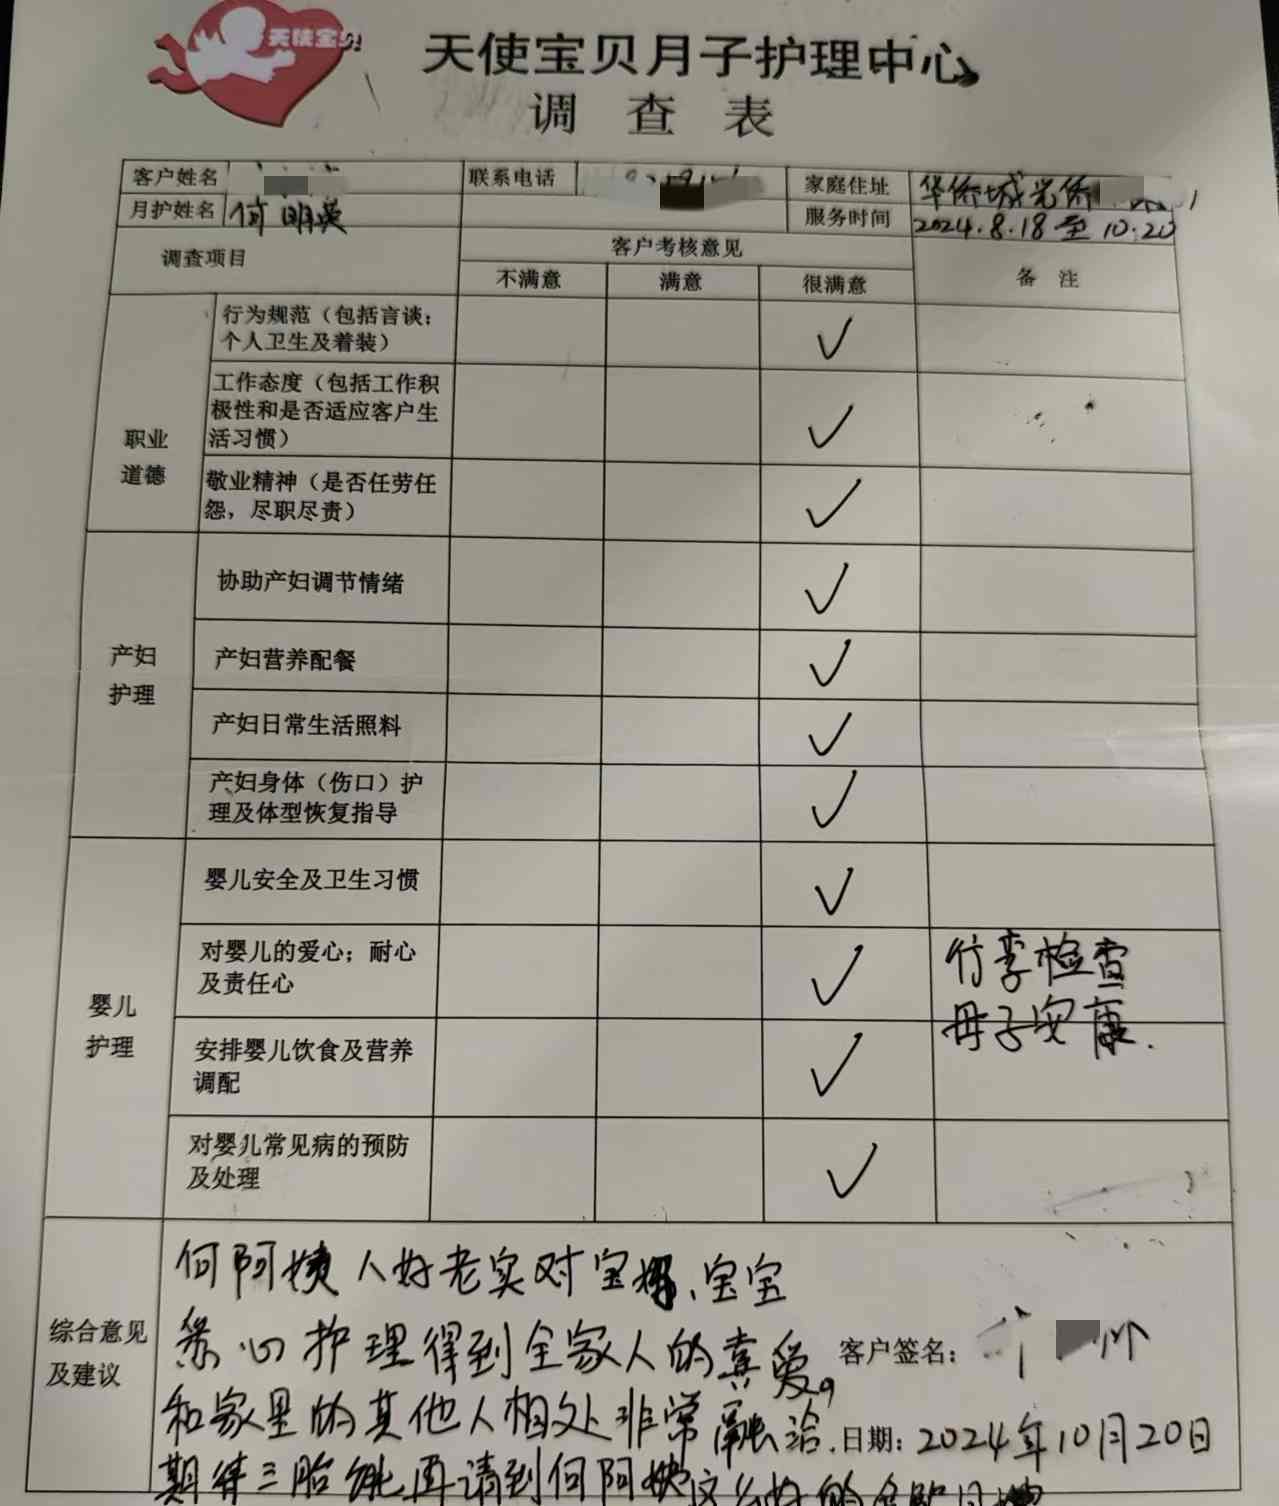 天使宝贝
天使宝贝月子护理中心
调 查 表
客户姓名
联系电话
家庭住址 华侨城光侨
月护姓名 何明英
服务时间 2024.8.18至10.20
调查项目
客户考核意见
备 注
不满意 满意 很满意
职业
道德
行为规范（包括言谈；
个人卫生及着装）
✓
工作态度（包括工作积
极性和是否适应客户生
活习惯）
✓
敬业精神（是否任劳任
怨，尽职尽责）
✓
产妇
护理
协助产妇调节情绪
✓
产妇营养配餐
✓
产妇日常生活照料
✓
产妇身体（伤口）护
理及体型恢复指导
✓
婴儿
护理
婴儿安全及卫生习惯
✓
对婴儿的爱心；耐心
及责任心
✓
行李检查
母子安康.
安排婴儿饮食及营养
调配
✓
对婴儿常见病的预防
及处理
✓
综合意见
及建议
何阿姨人好老实对宝妈、宝宝
心护理得到全家人的喜爱。
和家里的其他人相处非常融洽.
期待三胎能再请到何阿姨这么好的
客户签名：
日期：2024年10月20日